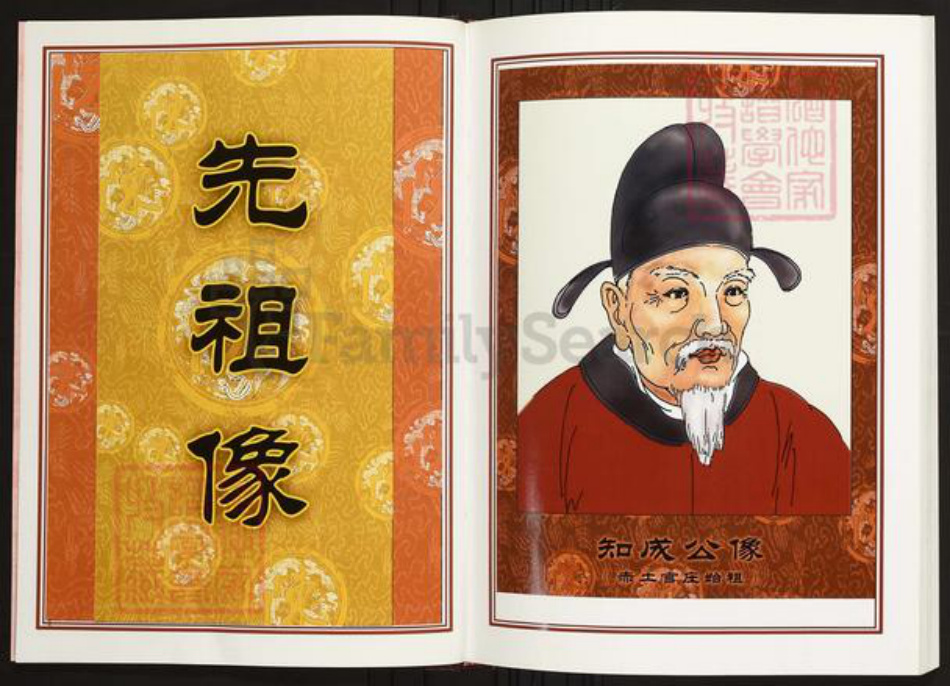 先祖像
知成公像
赤土官庄始祖
FamilySearch